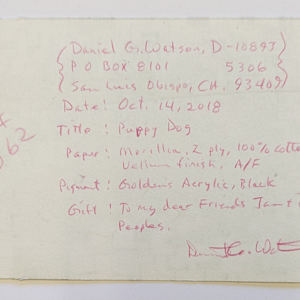 Daniel G. Watson, D-10893
P O Box 8101 5306
San Luis Obispo, CA. 93409
Date: Oct. 14, 2018
Title: Puppy Dog
Paper: Morilla, 2 ply, 100% cotto
Vellum finish, A/F
Pigment: Golden's Acrylic, Black
Gift: To my dear Friends
Peoples.
62